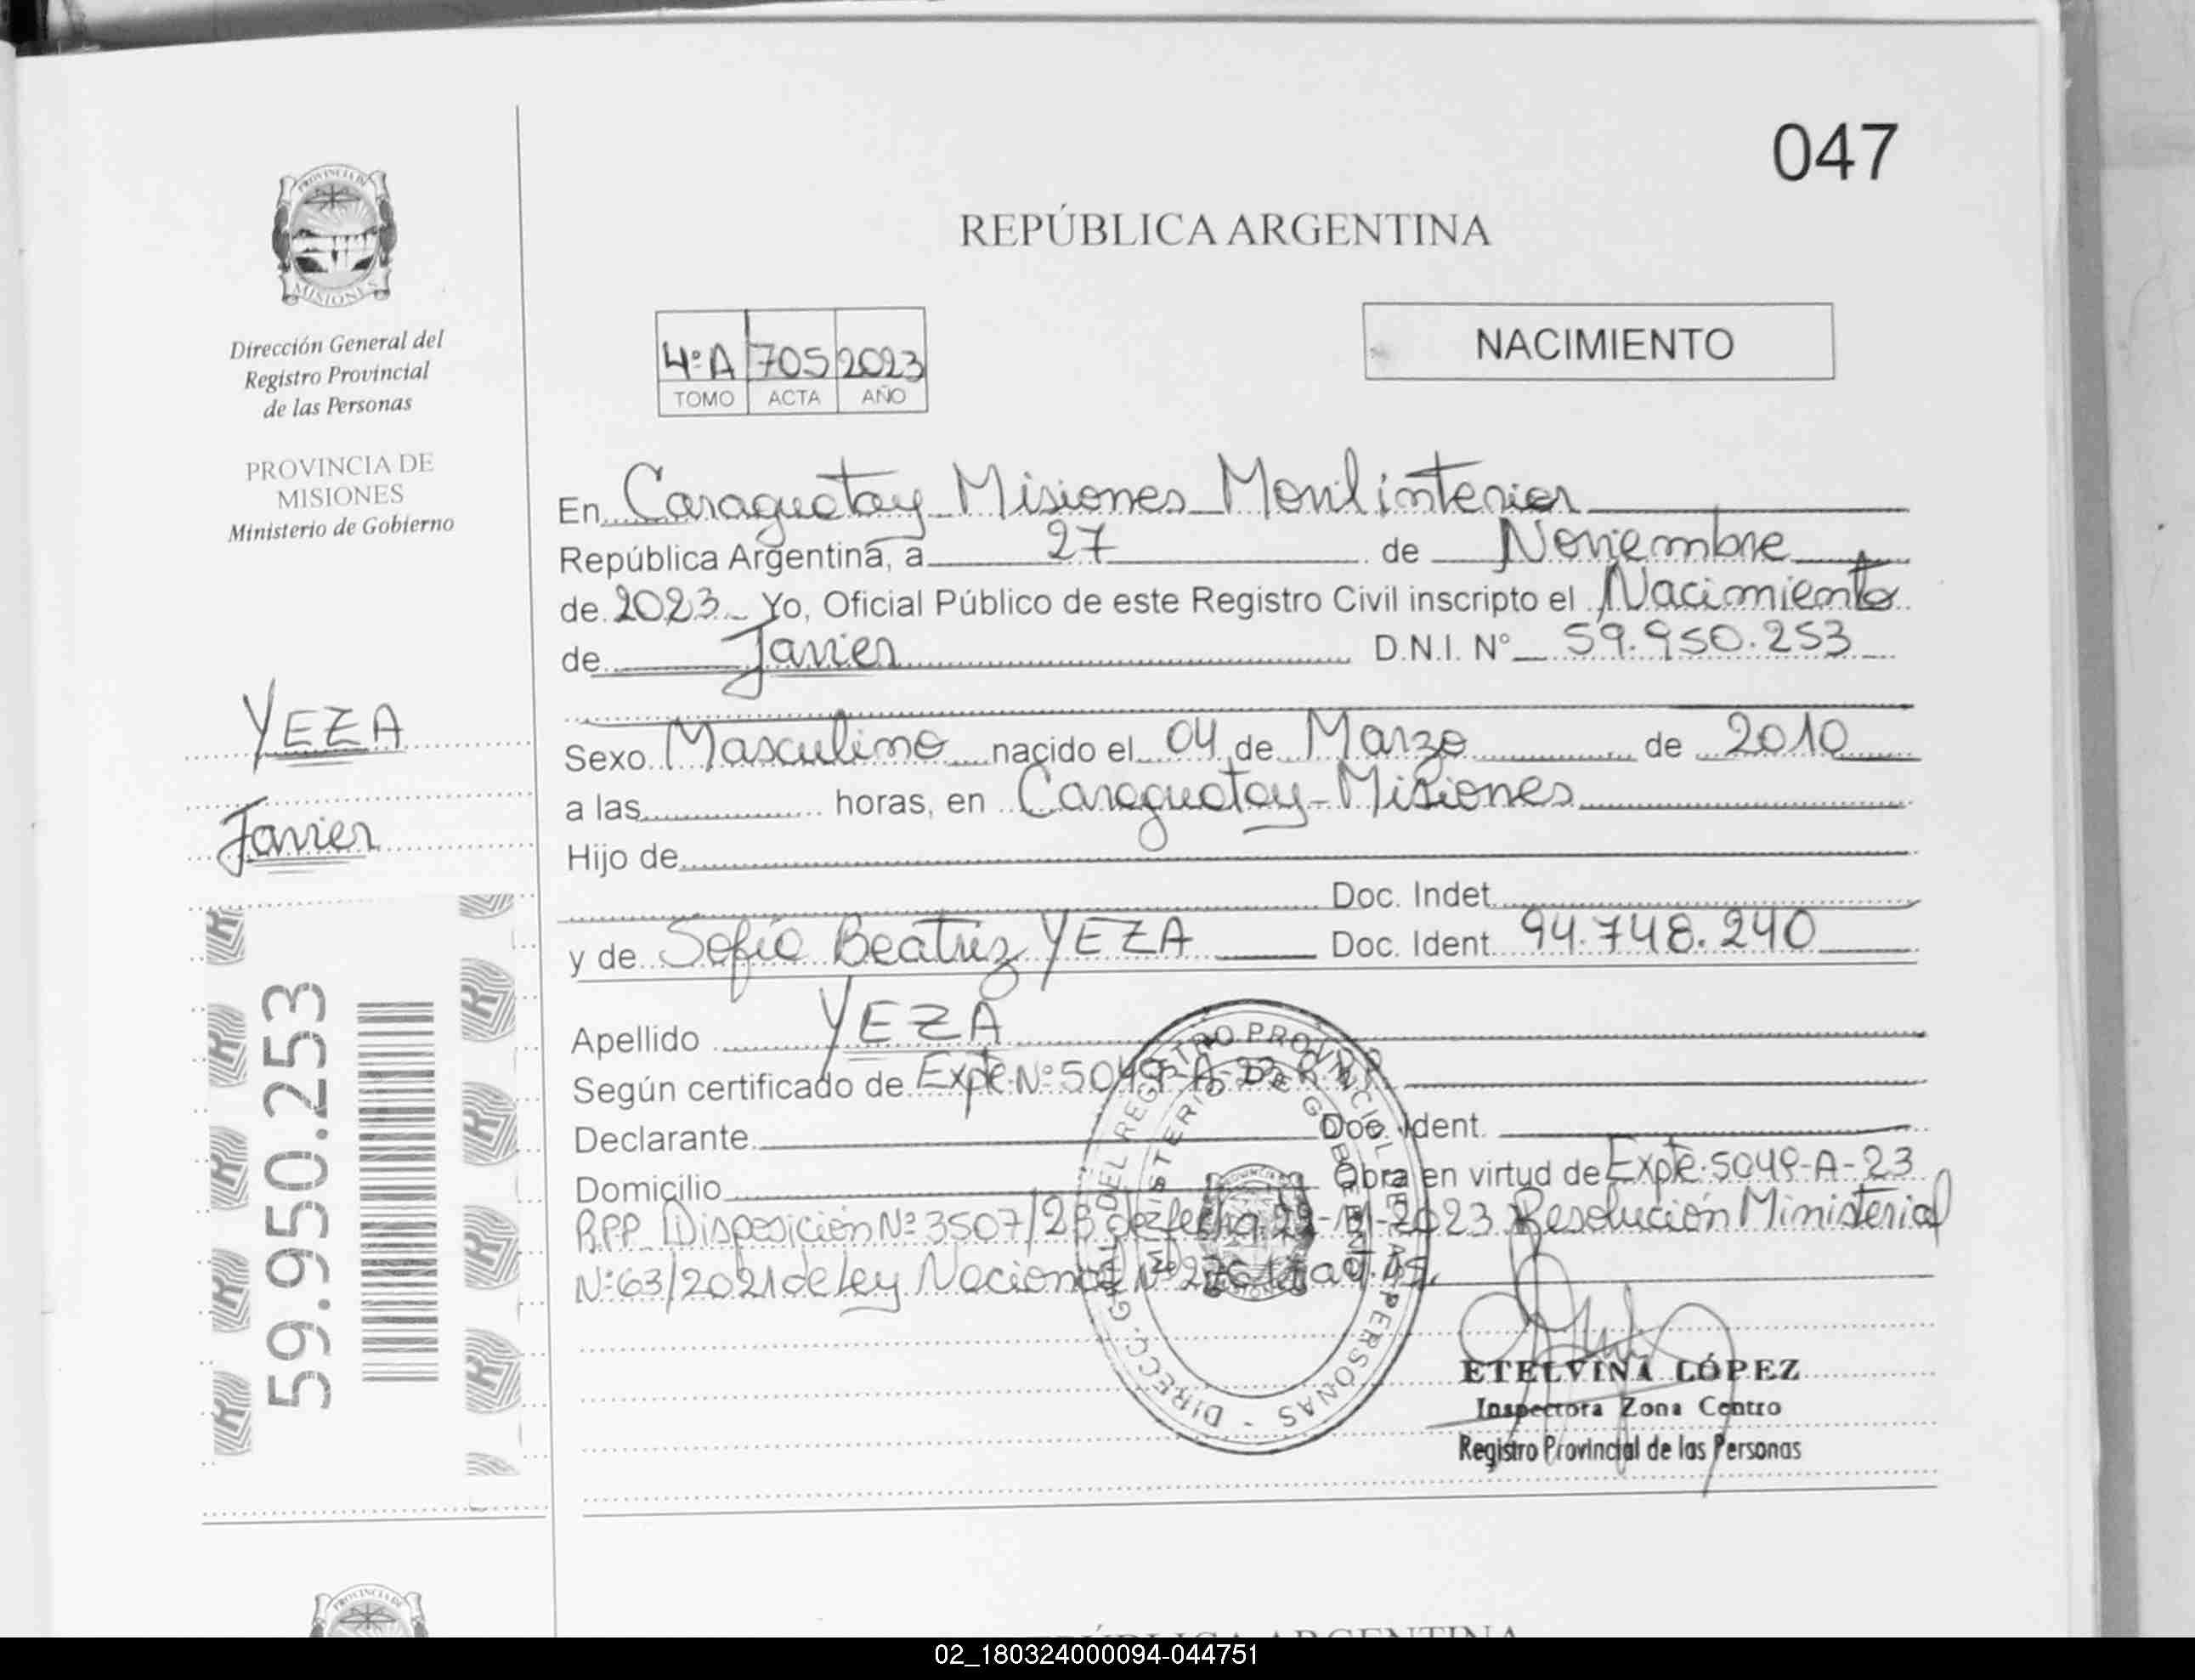 047
REPÚBLICA ARGENTINA
PROVINCIA DE
MISIONES
Dirección General del
Registro Provincial
de las Personas
PROVINCIA DE
MISIONES
Ministerio de Gobierno
4º A 705 2023
TOMO ACTA AÑO
NACIMIENTO
En Caraguatay Misiones Movil interior
República Argentina, a 27 de Noviembre
de 2023 Yo, Oficial Público de este Registro Civil inscripto el Nacimiento
de Javier D.N.I. Nº 59.950.253
YEZA
Javier
59.950.253
Sexo Masculino nacido el 04 de Marzo de 2010
a las horas, en Caraguatay-Misiones
Hijo de
Doc. Indet.
y de Sofia Beatriz YEZA Doc. Ident. 94.748.240
Apellido YEZA
Según certificado de Expte Nº 5049-A-23
Declarante Doc. Ident.
Domicilio Obra en virtud de Expte. 5049-A-23
RPP Disposición Nº 3507/23 de fecha 2023 Resolución Ministerial
Nº 63/2021 de Ley Nacional Nº
DIRECC. GRAL. DEL REGISTRO PROVINCIAL DE LAS PERSONAS
MINISTERIO DE GOBIERNO
ETELVINA LÓPEZ
Inspectora Zona Centro
Registro Provincial de las Personas
02_180324000094-044751